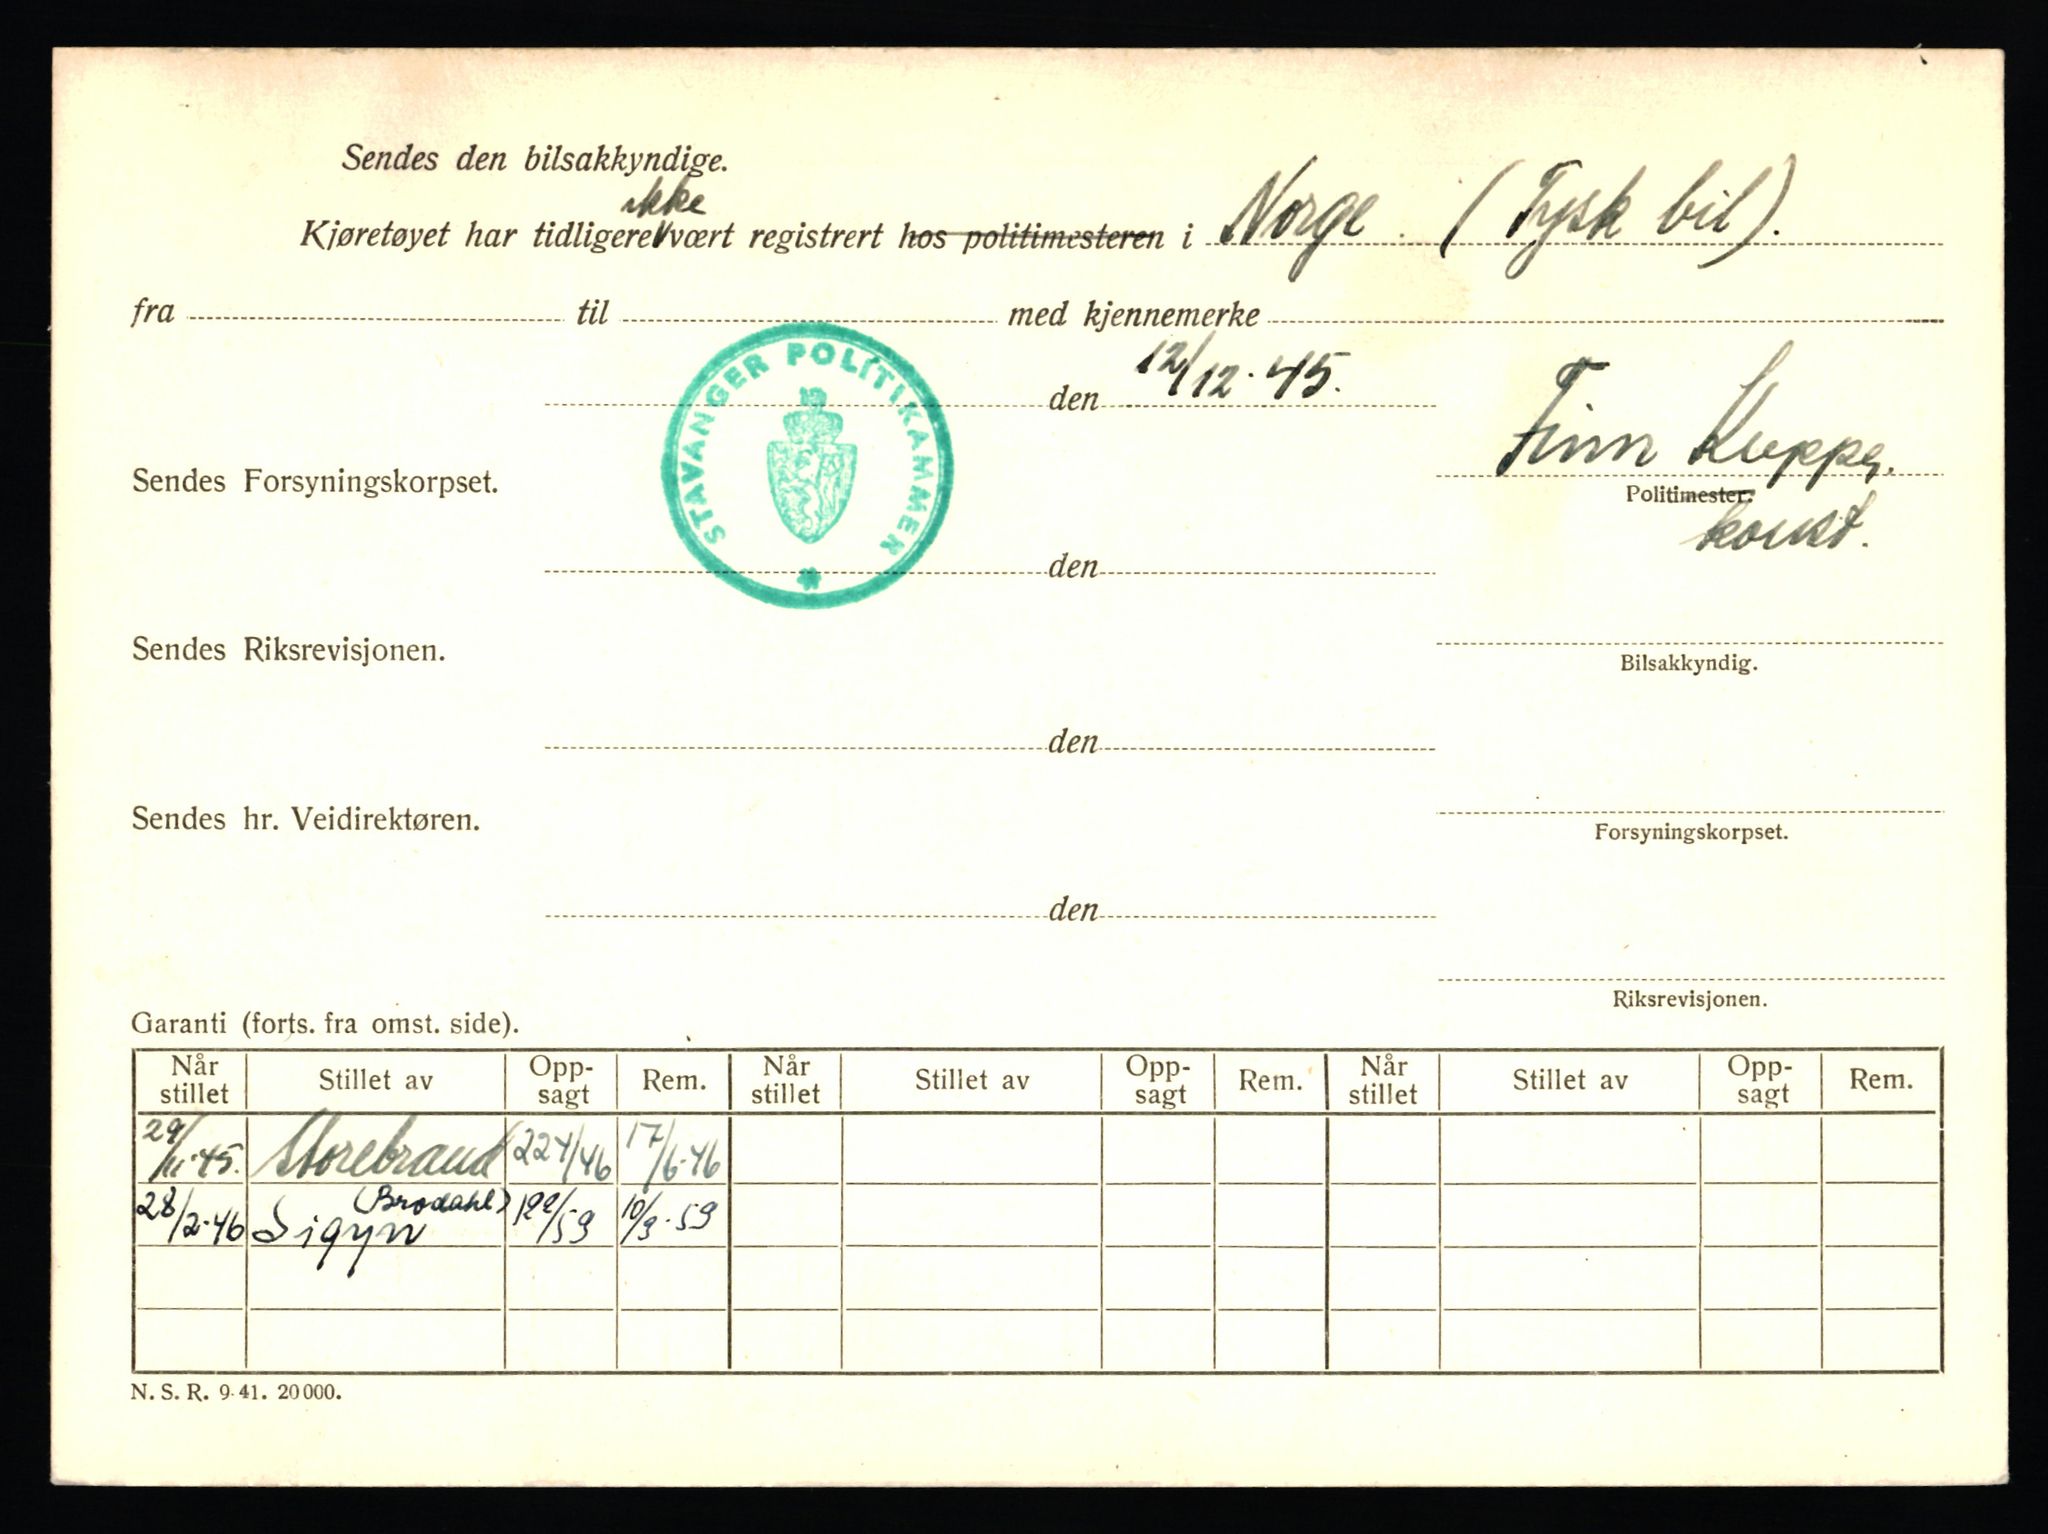 Sendes den bilsakkyndige.
ikke
Kjøretøyet har tidligere vært registrert hos politimesteren i Norge. (Tysk bil).
fra til med kjennemerke
STAVANGER POLITIKAMMER
den 12/12.45.
Finn
Sendes Forsyningskorpset.
Politimester.
konst.
den
Sendes Riksrevisjonen.
Bilsakkyndig.
den
Sendes hr. Veidirektøren.
Forsyningskorpset.
den
Riksrevisjonen.
Garanti (forts. fra omst. side).
Når stillet Stillet av Opp-sagt Rem. Når stillet Stillet av Opp-sagt Rem. Når stillet Stillet av Opp-sagt Rem.
29/11.45. Storebrand 224/46 17/6.46
28/2.46 Sigyn (Brodahl) 10/3.59
N. S. R. 9-41. 20000.